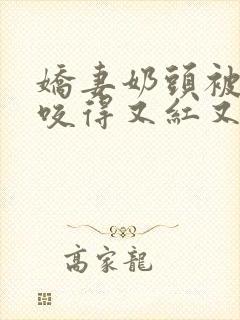 嬌妻奶頭被
咬得又紅又
高家龍